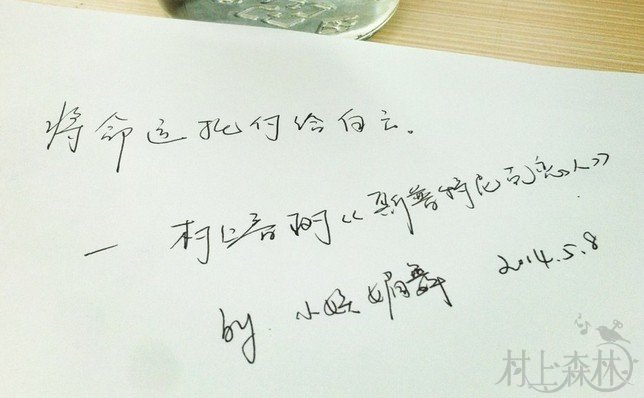 将命运托付给白云。
— 村上春树《斯普特尼克恋人》
by 小妖媚 2014.5.8
村上森林